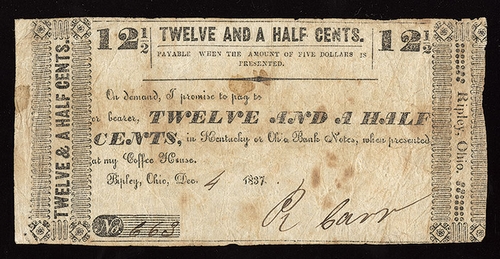 TWELVE & A HALF CENTS.
12 1/2
TWELVE AND A HALF CENTS.
PAYABLE WHEN THE AMOUNT OF FIVE DOLLARS IS
PRESENTED.
12 1/2
On demand, I promise to pay to
or bearer, TWELVE AND A HALF
CENTS, in Kentucky or Ohio Bank Notes, when presented
at my Coffee House.
Ripley, Ohio, Dec. 4 1837.
No. 663
R Carr
Ripley, Ohio.